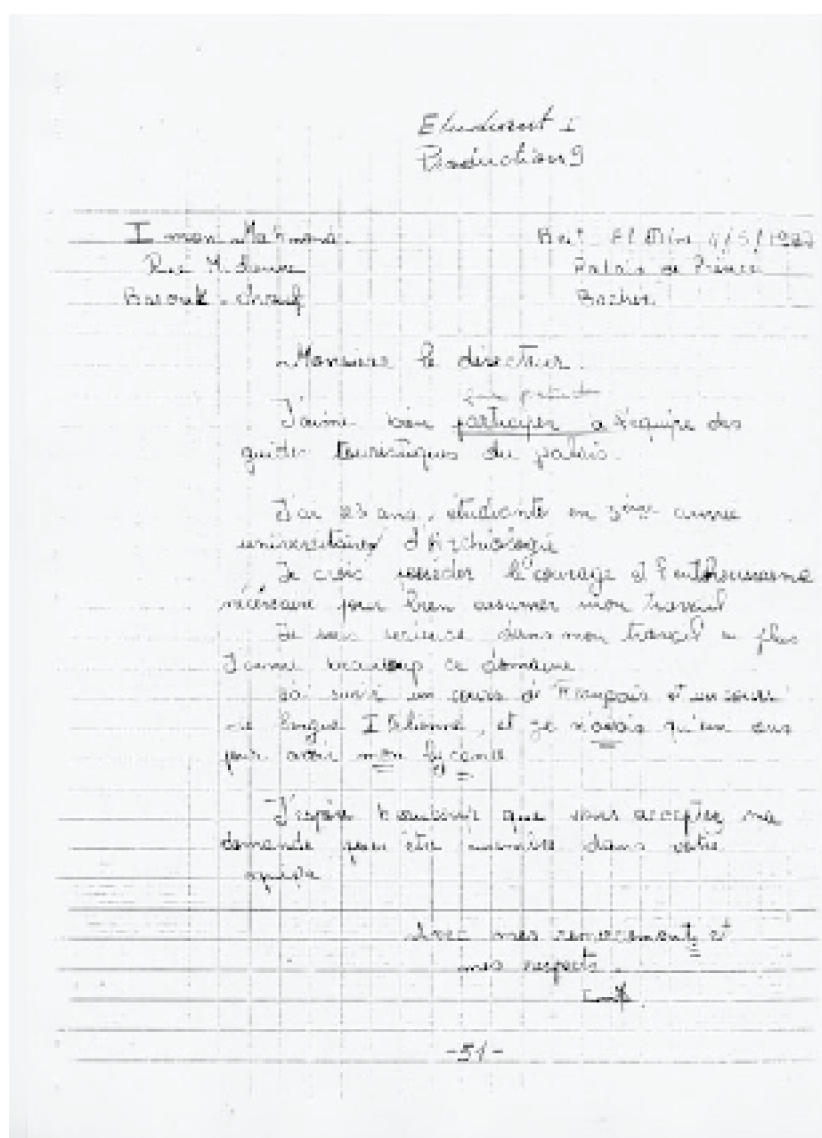 Etudiant 1
Production 9
Iman Mahmoud
Beit El Dine 4/5/1987
Rue M.
Palais de Prince
Barouk - chouf
Bachir
Monsieur le directeur
J'aime bien participer a l'equipe des
guides touristiques du palais.
J'ai 23 ans, étudiante en 3ème année
universitaires d'Archiologie
Je crois posséder le courage et l'enthousiasme
nécessaire pour bien assumer mon travail
Je suis serieuse dans mon travail en plus
J'aime beaucoup ce domaine
J'ai suivi un cours de Français et un cours
de langue Italienne, et je n'avais qu'un ans
pour avoir mon lycence
J'espère que vous acceptez ma
demande pour être membre dans votre
equipe
Avec mes remerciements et
mes respects.
-51-